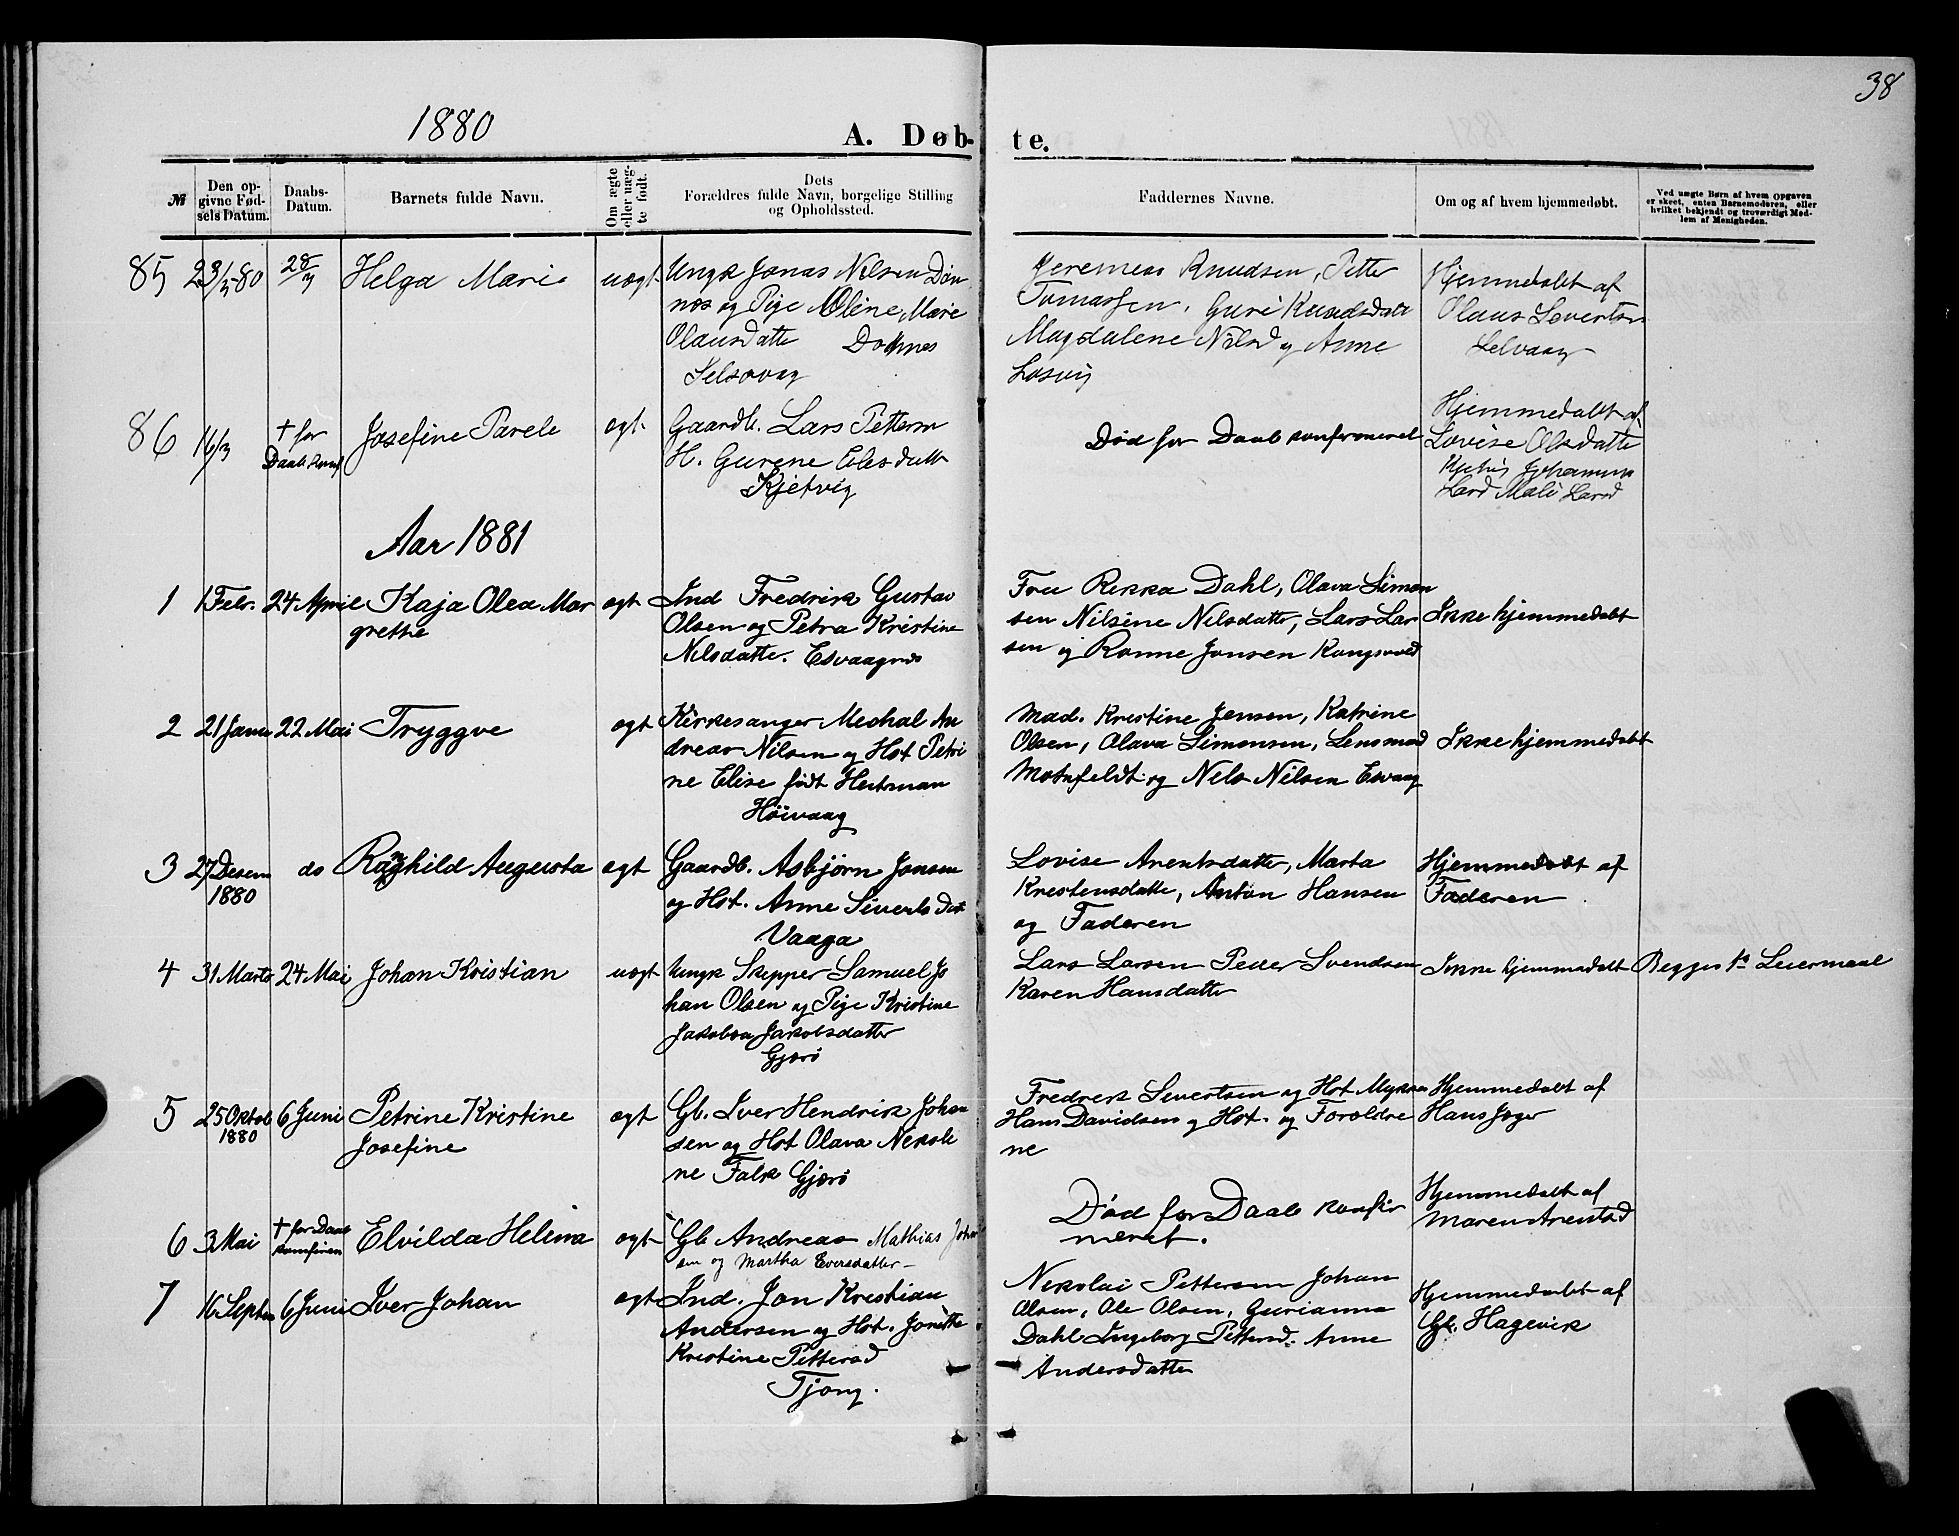 38
1880
A. Døb-
te.
№
Den op-
givne Fød-
sels Datum.
Daabs-
Datum.
Barnets fulde Navn.
Om ægte
eller uæg-
te født.
Dets
Forældres fulde Navn, borgelige Stilling
og Opholdssted.
Faddernes Navne.
Om og af hvem hjemmedøbt.
Ved uægte Børn af hvem Opgaven
er skeet, enten Barnemoderen, eller
hvilket bekjendt og troværdigt Med-
lem af Menigheden.
85 23/3 80 28/3 Helga Marie uægt
Ungk Jonas Nilsen Døn
nes og Pige Oline Marie
Olausdatte Dønnes
Selsøvag
Jeremias Knudsen, Petter
Tomassen, Guri Knudsdatt
Magdalene Nilsd og Anne
Løsvig
Hjemmedøbt af
Olaus Severtsen
Selvaag
86 16/3 † før
Daab Konf
Josefine Parele ægt.
Gaardb. Lars Pettersen
H. Gurene Elesdatt
Kjelvig
Død før Daab konfirmeret
Hjemmedøbt af
Lovise Olsdatte
Lard Mali Larsd
Aar 1881
1 1 Febr. 24 April Kaja Olea Mar
grethe
ægt
Ind Fredrik Gustav
Olsen og Petra Kristine
Nilsdatte. Esvaagnes
Fru Rikka Dahl, Olava Simon
sen Nilsine Nilsdatte, Lars Lar
sen og Rønne Jonsen Kongsvold
Ikke hjemmedøbt
2 21 Janu 22 Mai Tryggve ægt
Kirkesanger Mechal An
dreas Nilsen og Hst Petri
ne Elise født Heitman
Høivaag
Mad. Kristine Jensen, Katrine
Olsen, Olava Simonsen, Lensmad
Motzfeldt og Nils Nilsen Esvaag
Ikke hjemmedøbt
3 27 Desem
1880
do Ragnhild Augusta ægt
Gaardb. Asbjørn Jonsen
og Hst. Anne Siverts Dat
Vaaga
Lovise Arentsdatte, Marta
Krestensdatte, Anton Hansen
og Faderen
Hjemmedøbt af
Faderen
4 31 Marts 24 Mai Johan Kristian uægt
Ungk Skipper Samuel Jo
han Olsen og Pige Kristine
Jakobea Jakobsdatter
Gjerø
Lars Larsen Peder Svendsen
Karen Hansdatter
Ikke hjemmedøbt
Begges 1ste Leiermaal
5 25 Oktob
1880
6 Juni Petrine Kristine
Josefine
ægt
Gb. Iver Hendrik Johan
sen og Hst Olava Nekole
ne Falk Gjerø
Fredrek Severtsen og Hst Myken
Hans Davidsen og Hst. og Foroldre
ne
Hjemmedøbt af
Hans Jøger
6 3 Mai † før Daab
konfirm
Elvilda Helena ægt
Gb Andreas Mathias Johan
sen og Martha Eversdatter
Død før Daab konfir
meret.
Hjemmedøbt af
Maren Arentsd
7 16 Septem 6 Juni Iver Johan ægt
Ind. Jon Kristian
Andersen og Hst. Jonette
Kristine Pettersd
Tjong.
Nekolai Pettersen Johan
Olsen, Ole Olsen, Gurianna
Dahl Ingeborg Pettersd. Anne
Andersdatte
Hjemmedøbt af
Gb. Hagevik